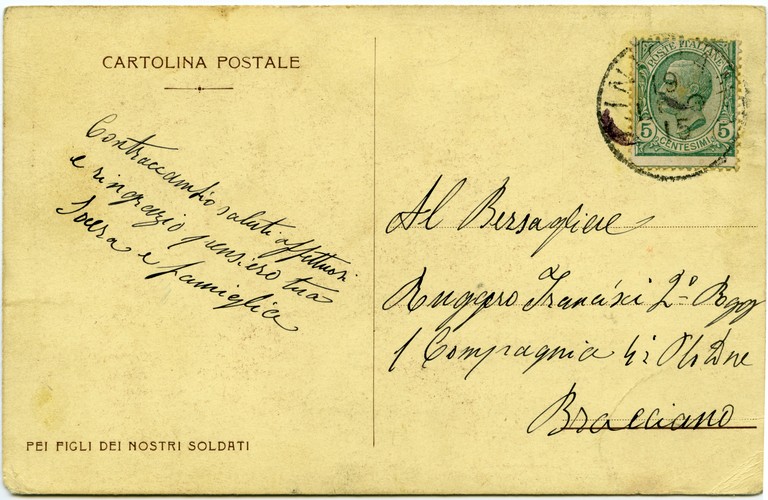 CARTOLINA POSTALE
Contraccambio saluti affettuosi
e ringrazio pensiero tua
Suocera e famiglia
PEI FIGLI DEI NOSTRI SOLDATI
POSTE ITALIANE
5 5
CENTESIMI
19
15
Al Bersagliere
Ruggero Francisci 2º Regg
1 Compagnia 4ª
Bracciano